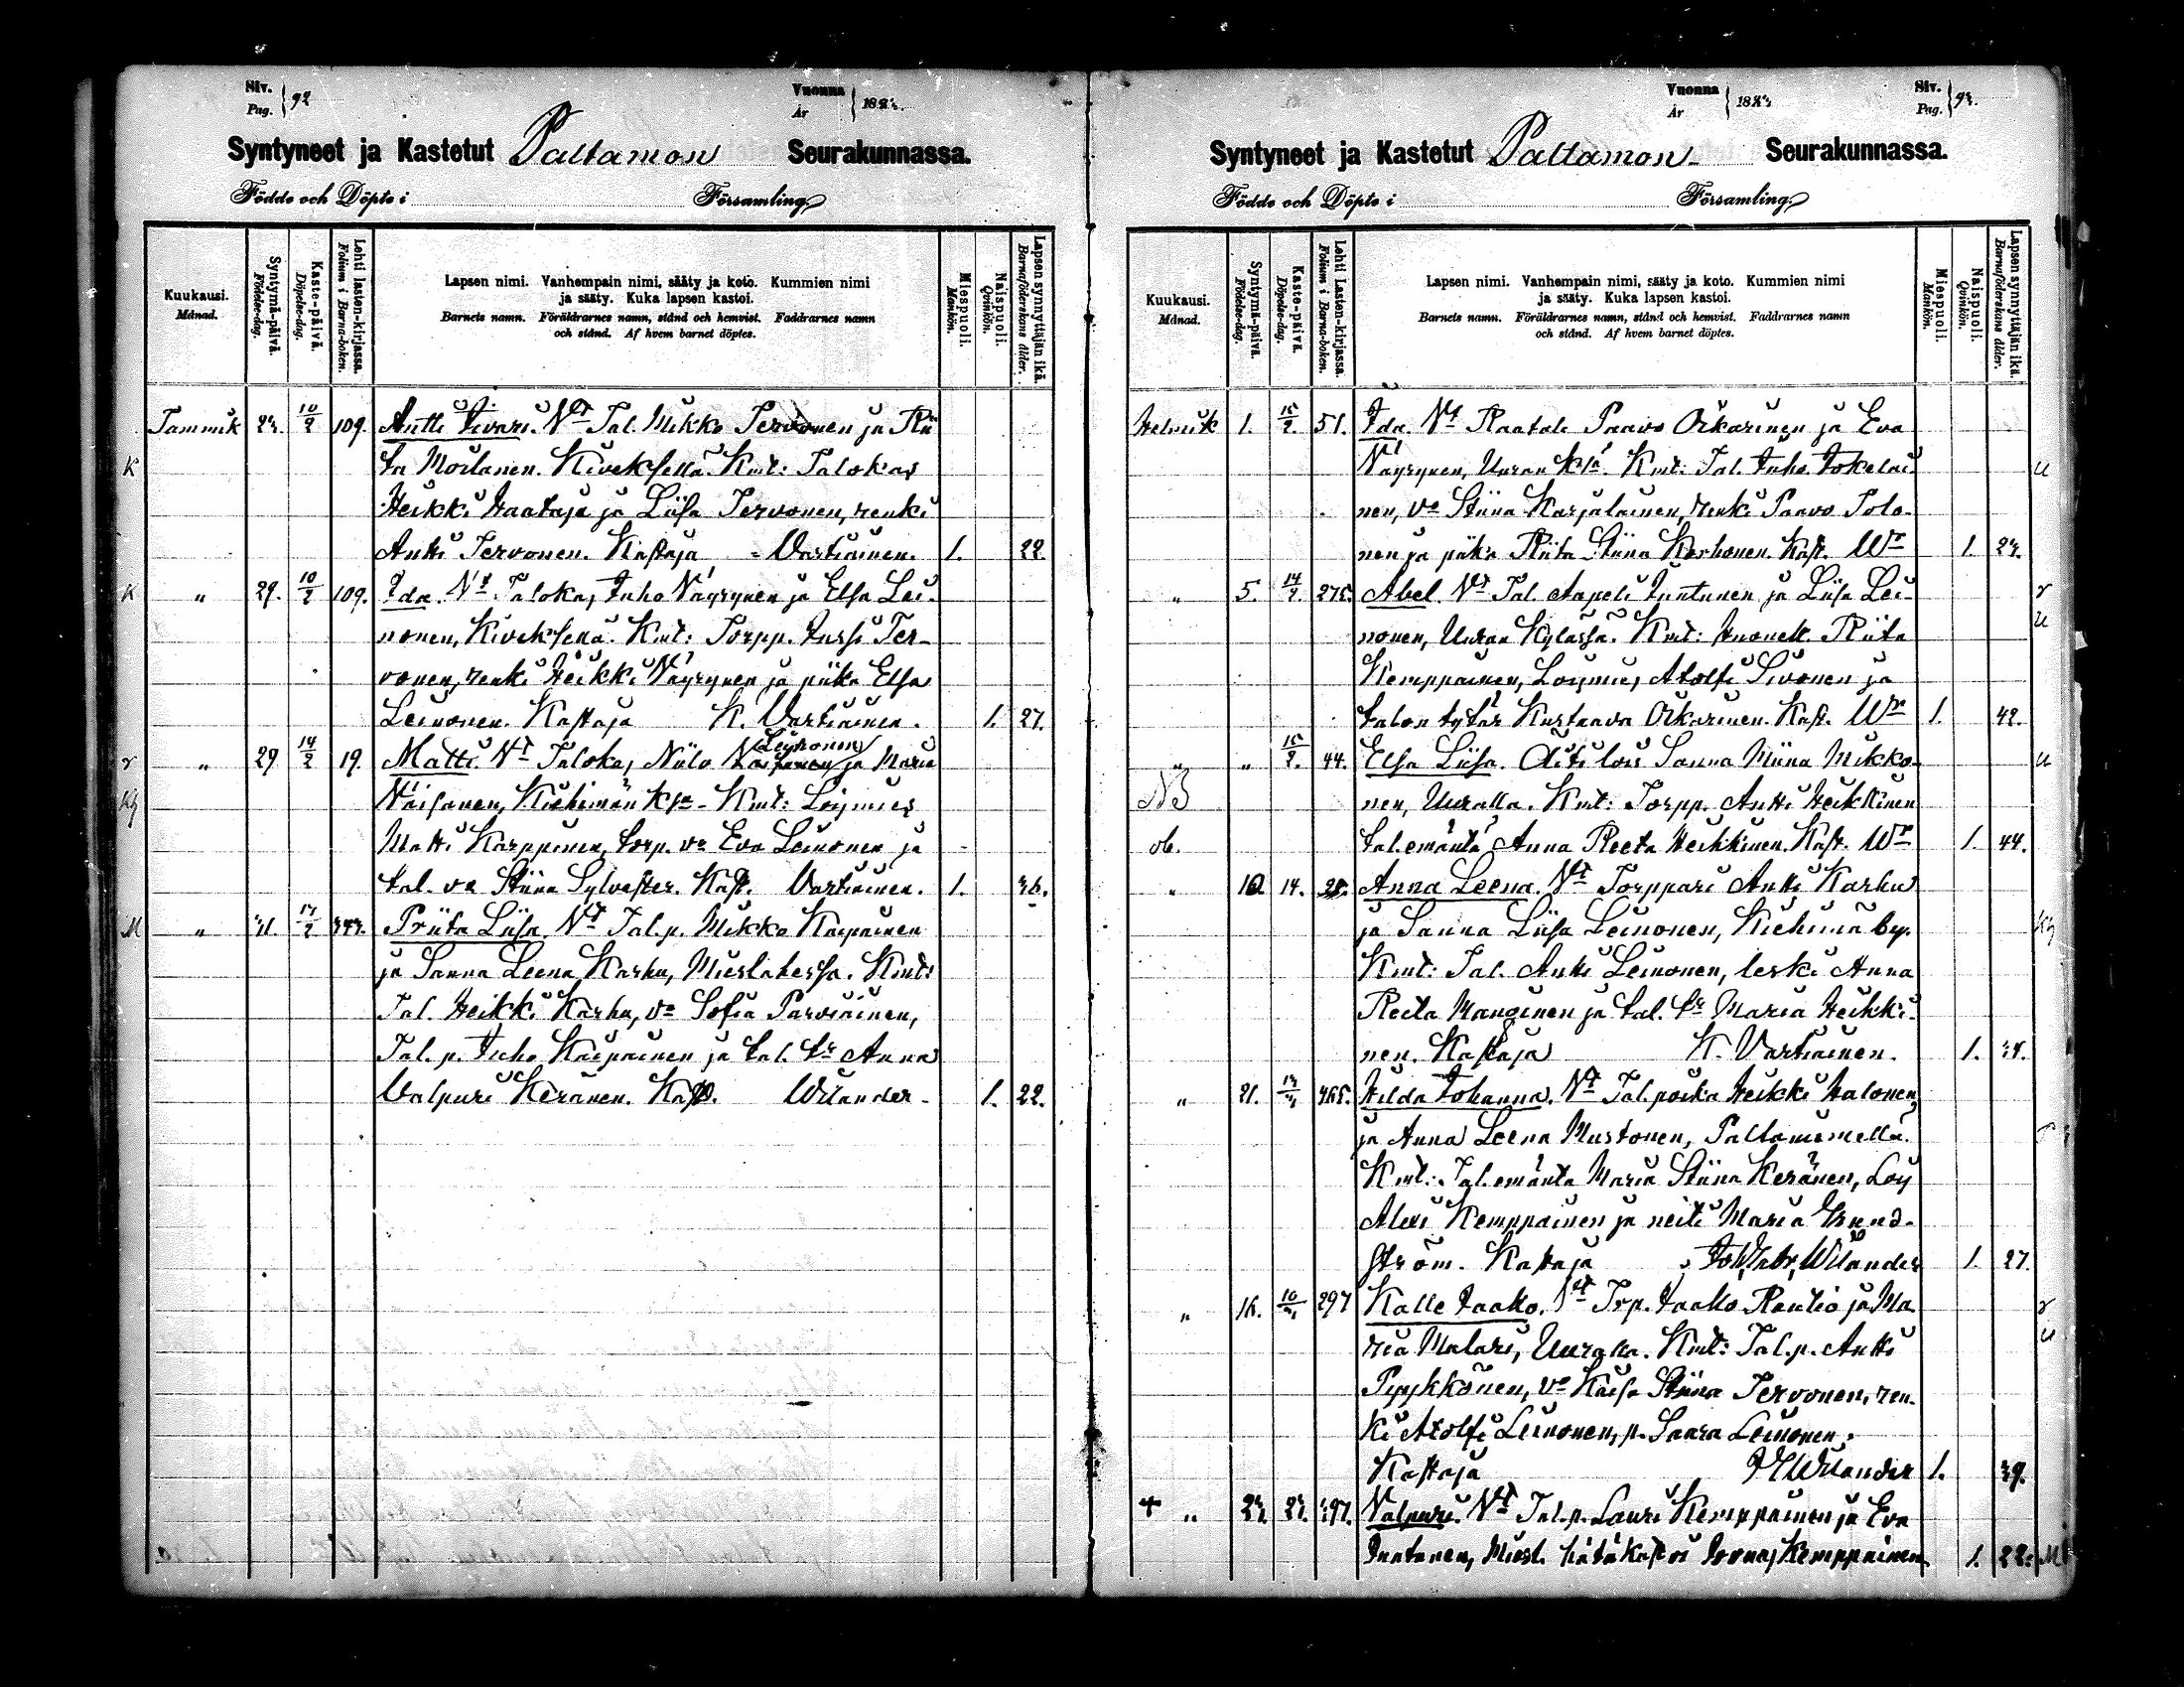 Siv. Pag. 92
Vuonna År 188
Syntyneet ja Kastetut Paltamon Seurakunnassa.
Födde och Döpte i Församling
Kuukausi. Månad.
Syntymä-päivä. Födelse-dag.
Kaste-päivä. Döpelse-dag.
Lehti lasten-kirjassa. Folium i Barna-boken.
Lapsen nimi. Vanhempain nimi, sääty ja koto. Kummien nimi
ja sääty. Kuka lapsen kastoi.
Barnets namn. Föräldrarnes namn, stånd och hemvist. Faddrarnes namn
och stånd. Af hvem barnet döptes.
Miespuoli. Mankön.
Naispuoli. Qvinkön.
Lapsen synnyttäjän ikä. Barnaföderskans ålder.
Tammik 10/2 109. Antti Iivari. Vt Tal. Mikko Tervonen ja Rii
K ta Moilanen. Kiveksellä. Kmt: Talokas
Heikki Haataja ja Liisa Tervonen, renki
Antti Tervonen. Kastaja = Vartiainen. 1. 22.
K " 29. 10/2 109. Ida. Vt Talokas Juho Väyrynen ja Elsa Lei-
nonen, Kiveksellä. Kmt: Torpp. Jussi Ter-
vonen, renki Heikki Väyrynen ja piika Elsa
Leinonen. Kastaja K. Vartiainen. 1. 27.
r " 29 14/2 19. Matti. Vt Talokas Niilo Leinonen ja Maria
Kh Väisänen, Kiehimän klä - Kmt: Loismies
Matti Karppinen, torp. vo Eva Leinonen ja
tal. vo Stiina Sylvester. Kast. Vartiainen. 1. 36.
M " 31. 17/2 343. Priita Liisa. Vt Tal. p. Mikko Kaipainen
ja Sanna Leena Karhu, Mieslahessa. Kmt:
Tal. Heikki Karhu, vo Sofia Parviainen,
Tal. p. Juho Kaipainen ja tal. tr Anna
Valpuri Keränen. Kast. Wilander. 1. 22.
Vuonna År 188
Siv. Pag. 93.
Syntyneet ja Kastetut Paltamon Seurakunnassa.
Födde och Döpte i Församling
Kuukausi. Månad.
Syntymä-päivä. Födelse-dag.
Kaste-päivä. Döpelse-dag.
Lehti Lasten-kirjassa. Folium i Barna-boken.
Lapsen nimi. Vanhempain nimi, sääty ja koto. Kummien nimi
ja sääty. Kuka lapsen kastoi.
Barnets namn. Föräldrarnes namn, stånd och hemvist. Faddrarnes namn
och stånd. Af hvem barnet döptes.
Miespuoli. Mankön.
Naispuoli. Qvinkön.
Lapsen synnyttäjän ikä. Barnaföderskans ålder.
Helmik 1. 15/2. 51. Ida. Vt Raatali Paavo Oikarinen ja Eva
Väyrynen, Uuran klä. Kmt: Tal. Juho Jokelai- u
nen, vo Stiina Karjalainen, renki Paavo Polo-
nen ja piika Riita Stiina Korhonen. Kast. Wr 1. 23.
" 5. 14/2. 275. Abel. Vt Tal. Aapeli Juntunen ja Liisa Lei- r
nonen, Uuran Kylässä. Kmt: Huonek. Riita u
Kemppainen, Loismies Atolfi Sivonen ja
talon tytär Kustaava Oikarinen. Kast. Wr 1. 42.
" " 15/2. 44. Elsa Liisa. Äiti lois Sanna Miina Mikko- u
NB nen, Uuralla. Kmt: Torpp. Antti Heikkinen
ob. tal. emäntä Anna Reeta Heikkinen. Kast. Wr 1. 44.
" 10 14. 28. Anna Leena. Vt Torppari Antti Karhu
ja Sanna Liisa Leinonen, Kiehimä by. Kh
Kmt: Tal. Antti Leinonen, leski Anna
Reeta Manninen ja tal. tr Maria Heikki-
nen. Kastaja K. Vartiainen. 1. 34.
" 21. 465. Hilda Johanna. Vt Tal. poika Heikki Halonen
ja Anna Leena Mustonen, Paltaniemellä.
Kmt: Tal. emäntä Maria Stiina Keränen, Loij
Alexi Kemppainen ja neiti Maria Grund-
ström. Kastaja Joh. Gabr. Wilander 1. 27.
" 16. 297 Kalle Jaako. Vt Trp. Jaakko Rautio ja Ma- r
ria Malari, Uuralla. Kmt: Tal. p. Antti u
Pyykkönen, vo Kaisa Stiina Tervonen, ren-
ki Atolfi Leinonen, p. Saara Leinonen.
Kastaja Wilander 1. 39.
+ " 23. 23. 397. Valpuri. Vt Tal. p. Lauri Kemppainen ja Eva
Juntunen, Miesl. hätäkastoi Joonas Kemppainen. 1. 22. M